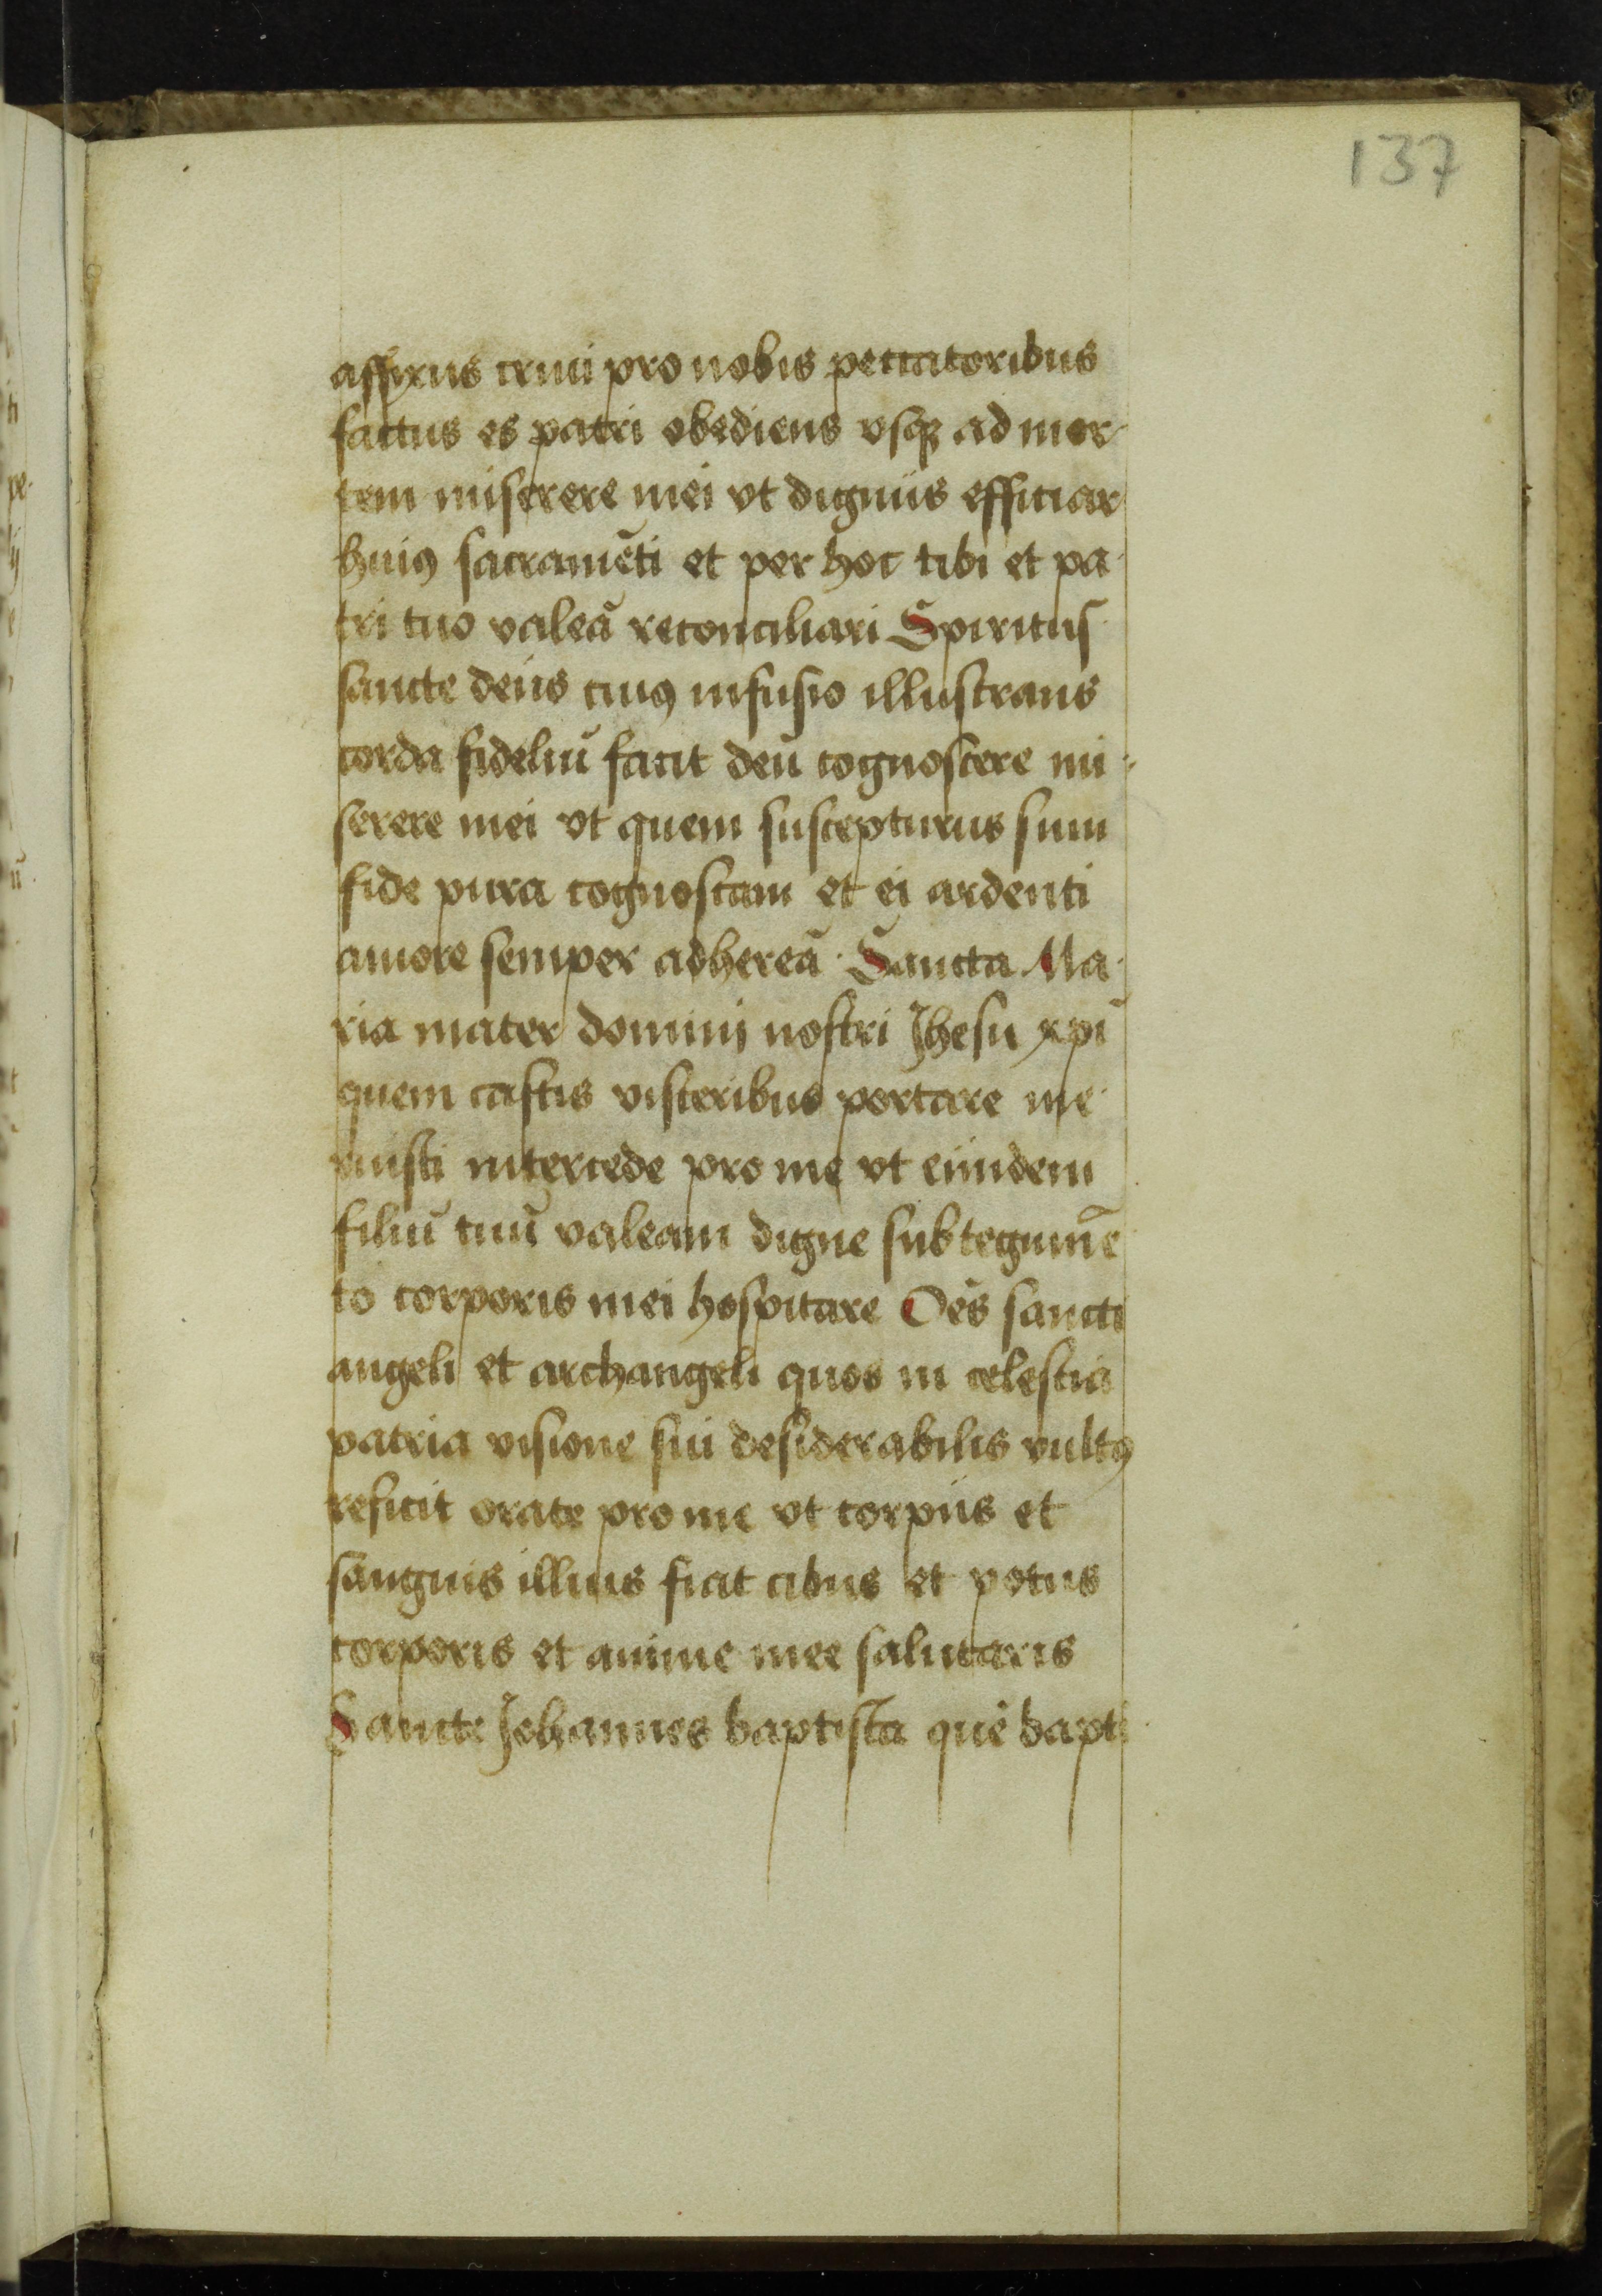 137
affixus cruci pro nobis peccatoribus
factus es patri obediens vsqꝫ ad mor
tem miserere mei vt dignus efficiar
huiꝰ sacramēti et per hoc tibi et pa
tri tuo valeā reconciliari Spiritus
sancte deus cuiꝰ infusio illustrans
corda fideliū facit deū cognoscere mi
serere mei vt quem suscepturus sum
fide pura cognoscam et ei ardenti
amore semper adhereā · Sancta Ma
ria mater dominj nostri Jhesu xp̄i
quem castis visceribus portare me
ruisti intercede pro me vt eundem
filiū tuū valeam digne sub tegumē
to corporis mei hospitare Oēs sancti
angeli et archangeli quos in celestia
patria visione sui desiderabilis vultꝰ
reficit orate pro me vt corpus et
sanguis illius fiat cibus et potus
corporis et anime mee salutaris
Sancte Johannes baptista quē bapti